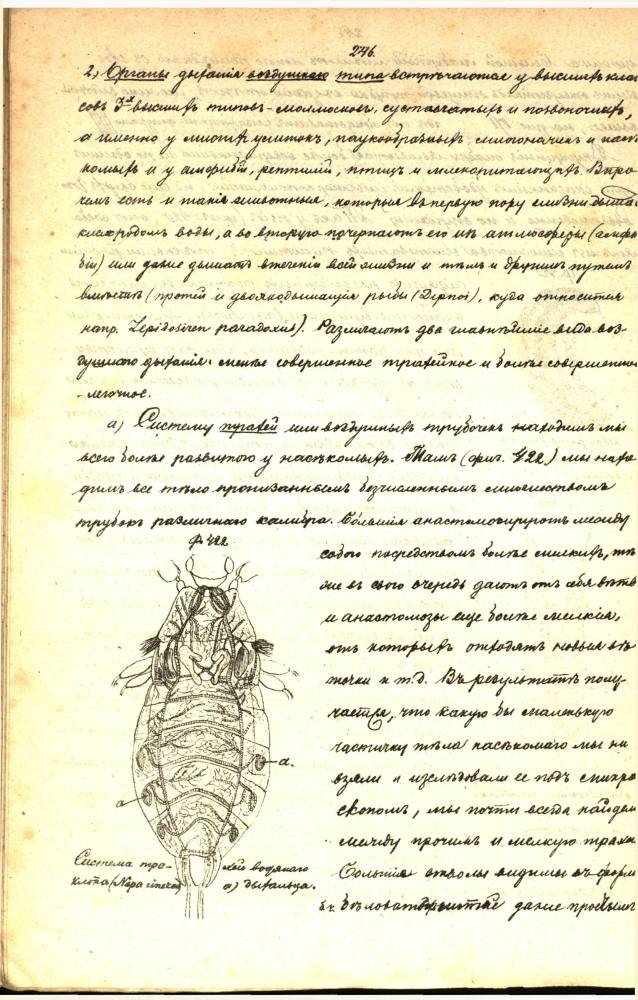 276.
2) Органы дыханія воздушнаго типа встрѣчаются у высшихъ клас
совъ 3хъ высшихъ типовъ - моллюсковъ, суставчатыхъ и позвоночныхъ,
а именно у многихъ улитокъ, паукообразныхъ, многоножекъ и насѣ
комыхъ и у амфибій, рептилій, птицъ и млекопитающихъ. Впро
чемъ есть и такія животныя, которыя въ первую пору жизни дыша
кислородомъ воды, а во вторую почерпаютъ его изъ атмосферы (амфи
біи) или даже дышатъ втеченіи всей жизни и тѣмъ и другимъ путемъ
вмѣстѣ (протей и двоякодышащія рыбы (Dipnoi), куда относится
напр. Lepidosiren paradoxus). Различаютъ два главнѣйшіе вида воз-
душнаго дыханія: менѣе совершенное трахейное и болѣе совершенное
- легочное.
а) Систему трахей или воздушныхъ трубочекъ находимъ мы
всего болѣе развитою у насѣкомыхъ. Тамъ (фиг. 422) мы нахо
димъ все тѣло пронизаннымъ безчисленнымъ множествомъ
трубокъ различнаго калибра. Большія анастомозируютъ между
Ф. 422
собою посредствомъ болѣе мелкихъ, тѣ
же въ свою очередь даютъ отъ себя вѣтв
и анастомозы еще болѣе мелкія,
отъ которыхъ отходятъ новыя вѣ
точки и т.д. Въ результатѣ полу-
чается, что какую бы маленькую
частичку тѣла насѣкомаго мы ни
взяли и изслѣдовали ее подъ микро
скопомъ, мы почти всегда найдем
между прочимъ и мелкую трахе
Большія стволы видимы въ форм
даже
а.
а
Система тра- хей водянаго
клопа (Nepa cinerea) а) дыхальца.